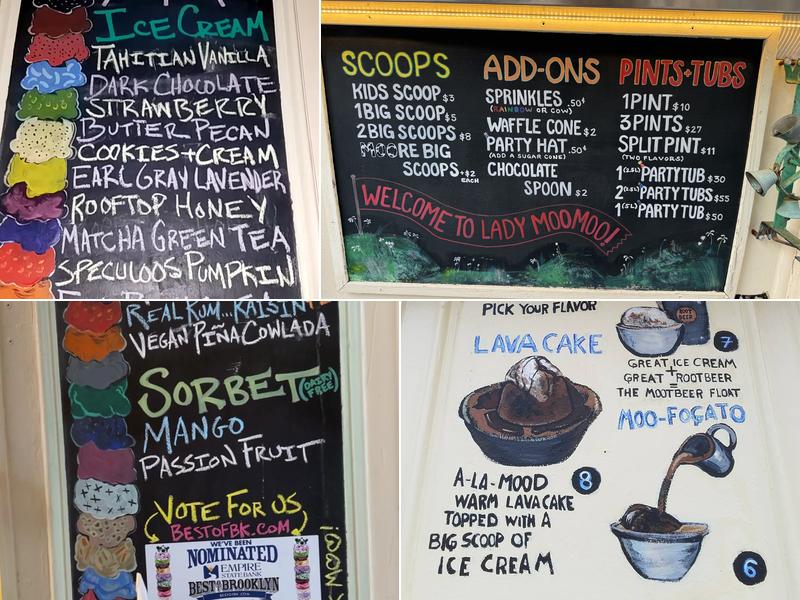 ICE CREAM
TAHITIAN VANILLA
DARK CHOCOLATE
STRAWBERRY
BUTTER PECAN
COOKIES+CREAM
EARL GRAY LAVENDER
ROOFTOP HONEY
MATCHA GREEN TEA
SPECULOOS PUMPKIN
SCOOPS
KIDS SCOOP $3
1 BIG SCOOP $5
2 BIG SCOOPS $8
MOORE BIG
SCOOPS +$2
EACH
ADD-ONS
SPRINKLES .50¢
(RAINBOW OR COW)
WAFFLE CONE $2
PARTY HAT .50¢
(ADD A SUGAR CONE)
CHOCOLATE
SPOON $2
PINTS+TUBS
1 PINT $10
3 PINTS $27
SPLIT PINT $11
(TWO FLAVORS)
1 (2.5L) PARTY TUB $30
2 (2.5L) PARTY TUBS $55
1 (5L) PARTY TUB $50
WELCOME TO LADY MOOMOO!
REAL RUM...RAISIN
VEGAN PIÑA COWLADA
SORBET (DAIRY FREE)
MANGO
PASSION FRUIT
VOTE FOR US
BESTOFBK.COM
WE'VE BEEN
NOMINATED
EMPIRE
STATE BANK
BEST OF BROOKLYN
BESTOFBK.COM
PICK YOUR FLAVOR
LAVA CAKE
8
A-LA-MOOD
WARM LAVA CAKE
TOPPED WITH A
BIG SCOOP OF
ICE CREAM
ROOT
BEER
7
GREAT ICE CREAM
+
GREAT ROOTBEER
=
THE MOOTBEER FLOAT
MOO-FOGATO
6